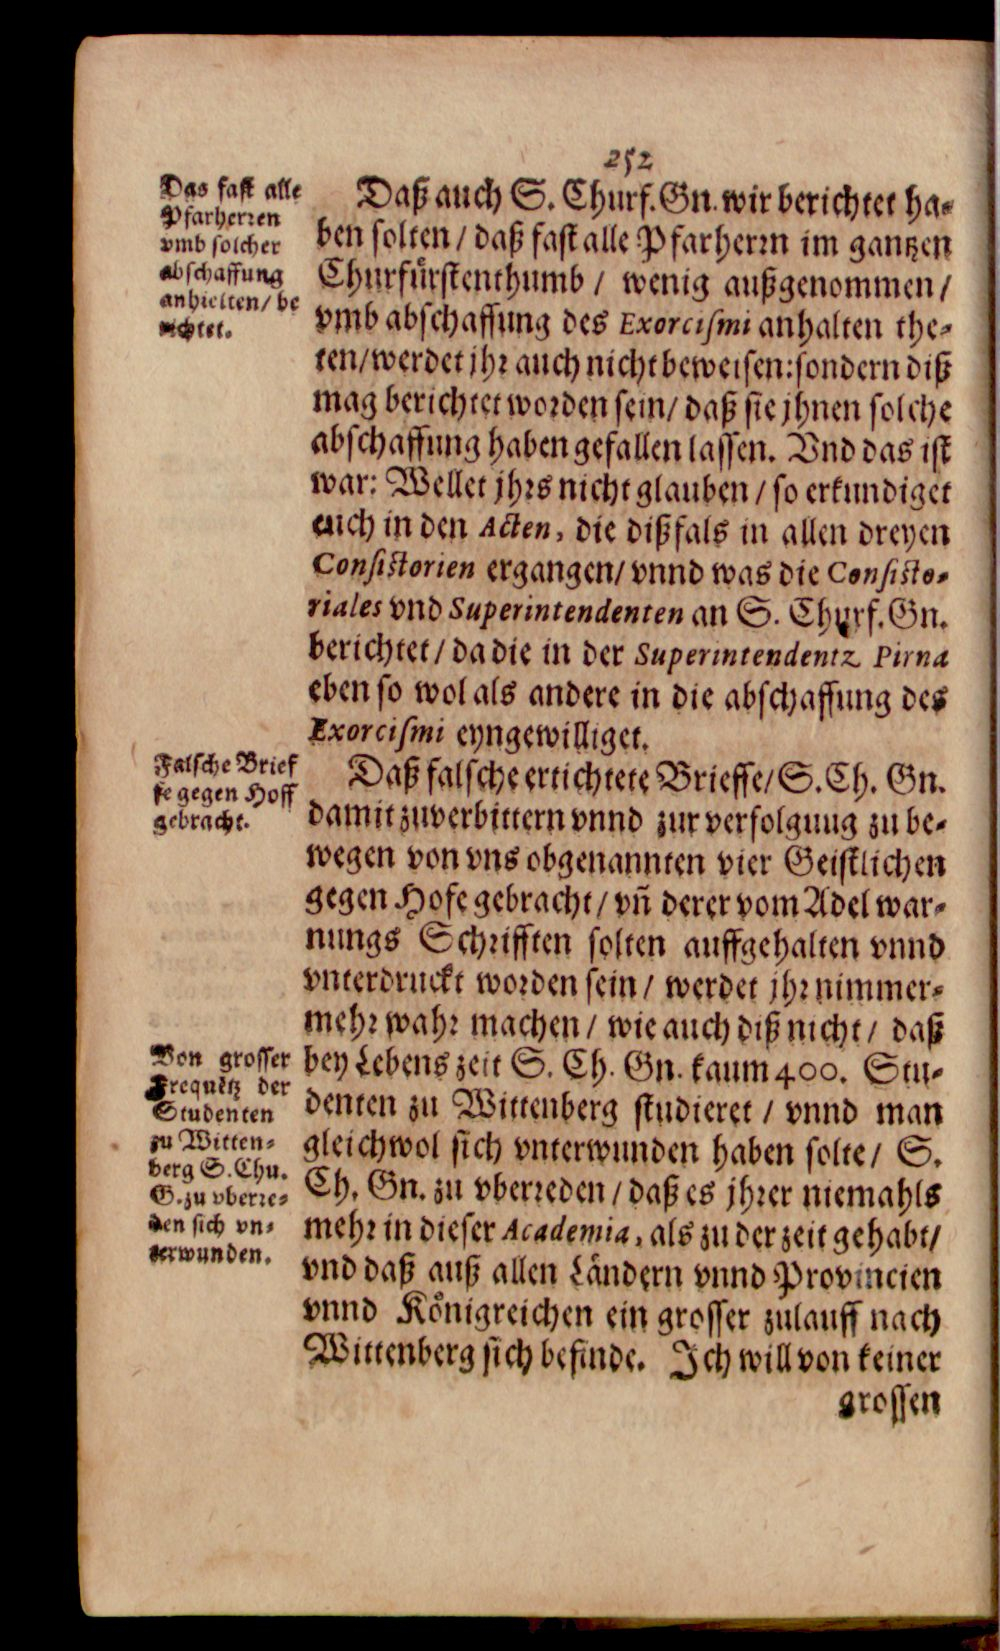 252
Das fast alle
Pfarherren
vmb solcher
abschaffung
anhielten/ be
richtet.
Daß auch S. Churf. Gn. wir berichtet ha-
ben solten / daß fast alle Pfarherrn im gantzen
Churfürstenthumb / wenig außgenommen /
vmb abschaffung des Exorcismi anhalten the-
ten/ werdet jhr auch nicht beweisen: sondern diß
mag berichtet worden sein/ daß sie jhnen solche
abschaffung haben gefallen lassen. Vnd das ist
war: Wellet jhrs nicht glauben / so erkundiget
euch in den Acten, die dißfals in allen dreyen
Consistorien ergangen/ vnnd was die Consisto-
riales vnd Superintendenten an S. Churf. Gn.
berichtet / da die in der Superintendentz Pirna
eben so wol als andere in die abschaffung des
Exorcismi eyngewilliget.
Falsche Brief
fe gegen Hoff
gebracht.
Daß falsche ertichtete Brieffe/ S. Ch. Gn.
damit zuverbittern vnnd zur verfolgung zu be-
wegen von vns obgenannten vier Geistlichen
gegen Hofe gebracht / vñ derer vom Adel war-
nungs Schrifften solten auffgehalten vnnd
vnterdruckt worden sein / werdet jhr nimmer-
mehr wahr machen / wie auch diß nicht / daß
Von grosser
Frequẽtz der
Studenten
zu Witten-
berg S. Chu.
G. zu vberre-
den sich vn-
terwunden.
bey Lebens zeit S. Ch. Gn. kaum 400. Stu-
denten zu Wittenberg studieret / vnnd man
gleichwol sich vnterwunden haben solte / S.
Ch. Gn. zu vberreden / daß es jhrer niemahls
mehr in dieser Academia, als zu der zeit gehabt/
vnd daß auß allen Ländern vnnd Provincien
vnnd Königreichen ein grosser zulauff nach
Wittenberg sich befinde. Ich will von keiner
grossen